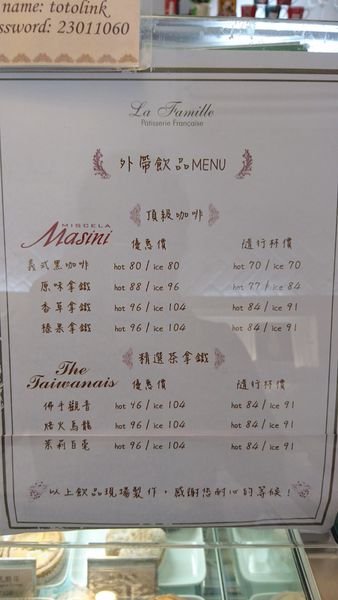 name: totolink
ssword: 23011060
La Famille
Pâtisserie Française
外帶飲品MENU
頂級咖啡
MISCELA
Masini 優惠價 隨行杯價
義式黑咖啡 hot 80 / ice 80 hot 70 / ice 70
原味拿鐵 hot 88 / ice 96 hot 77 / ice 84
香草拿鐵 hot 96 / ice 104 hot 84 / ice 91
榛果拿鐵 hot 96 / ice 104 hot 84 / ice 91
精選茶拿鐵
The
Taiwanais 優惠價 隨行杯價
佛手觀音 hot 96 / ice 104 hot 84 / ice 91
焙火烏龍 hot 96 / ice 104 hot 84 / ice 91
茉莉白毫 hot 96 / ice 104 hot 84 / ice 91
以上飲品現場製作，感謝您耐心的等候！